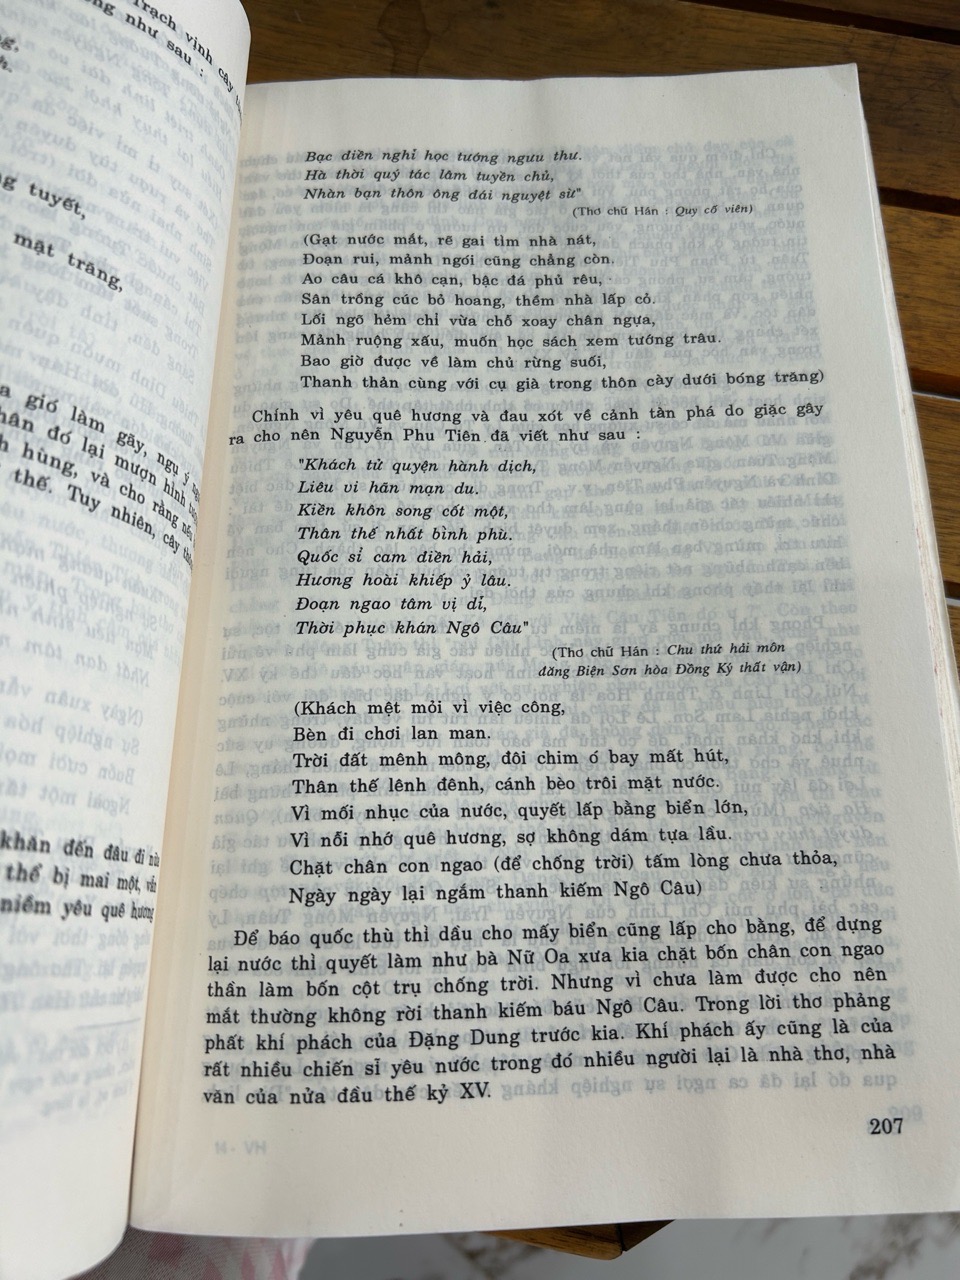 Trạch vịnh cây
ng như sau :
ng tuyết,
mặt trăng,
gió làm gãy, ngụ ý
hân đó lại mượn hình
h hùng, và cho rằng nếu
thế. Tuy nhiên, cây
khăn đến đâu đi nữ
thể bị mai một, vẫn
niềm yêu quê hương
Bạc điền nghỉ học tướng ngưu thư.
Hà thời quý tác lâm tuyền chủ,
Nhàn bạn thôn ông đái nguyệt sừ"
(Thơ chữ Hán : Quy cố viên)
(Gạt nước mắt, rẽ gai tìm nhà nát,
Đoạn rui, mảnh ngói cũng chẳng còn.
Ao câu cá khô cạn, bậc đá phủ rêu,
Sân trồng cúc bỏ hoang, thềm nhà lấp cỏ.
Lối ngõ hẻm chỉ vừa chỗ xoay chân ngựa,
Mảnh ruộng xấu, muốn học sách xem tướng trâu.
Bao giờ được về làm chủ rừng suối,
Thanh thản cùng với cụ già trong thôn cày dưới bóng trăng)
Chính vì yêu quê hương và đau xót về cảnh tàn phá do giặc gây
ra cho nên Nguyễn Phu Tiên đã viết như sau :
"Khách tử quyện hành dịch,
Liêu vi hãn mạn du.
Kiền khôn song cốt một,
Thân thế nhất bình phù.
Quốc sỉ cam điền hải,
Hương hoài khiếp ỷ lâu.
Đoạn ngao tâm vị dĩ,
Thời phục khán Ngô Câu"
(Thơ chữ Hán : Chu thứ hải môn
đăng Biện Sơn hòa Đồng Ký thất vận)
(Khách mệt mỏi vì việc công,
Bèn đi chơi lan man.
Trời đất mênh mông, đôi chim ó bay mất hút,
Thân thế lênh đênh, cánh bèo trôi mặt nước.
Vì mối nhục của nước, quyết lấp bằng biển lớn,
Vì nỗi nhớ quê hương, sợ không dám tựa lầu.
Chặt chân con ngao (để chống trời) tấm lòng chưa thỏa,
Ngày ngày lại ngắm thanh kiếm Ngô Câu)
Để báo quốc thù thì dầu cho mấy biển cũng lấp cho bằng, để dựng
lại nước thì quyết làm như bà Nữ Oa xưa kia chặt bốn chân con ngao
thần làm bốn cột trụ chống trời. Nhưng vì chưa làm được cho nên
mắt thường không rời thanh kiếm báu Ngô Câu. Trong lời thơ phảng
phất khí phách của Đặng Dung trước kia. Khí phách ấy cũng là của
rất nhiều chiến sĩ yêu nước trong đó nhiều người lại là nhà thơ, nhà
văn của nửa đầu thế kỷ XV.
207